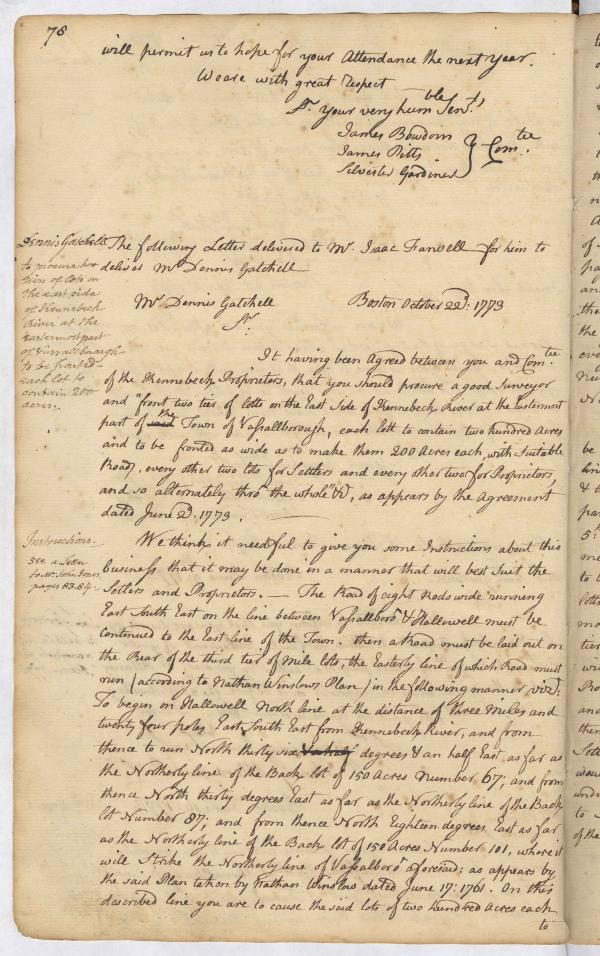 78
will permit us to hope for your Attendance the next Year.
We are with great respect
Sr. your very humble Servt.
James Bowdoin
James Pitts
Silvester Gardiner
Comtee.
Dennis Gatchell
to procure two
tiers of lots on
the east side
of Kennebeck
River at the
Easternmost part
of Vassalborough
to be fronted
each lot to
contain 200
acres.
The following Letter delivered to Mr. Isaac Farwell for him to
deliver Mr Dennis Gatchell
Mr. Dennis Gatchell
Boston October 22d. 1773
Sr.
It having been Agreed between you and Comtee
of the Kennebeck Proprietors, that you should procure a good Surveyor
and "front two tier of lotts on the East Side of Kennebeck River at the Eastermost
part of said the Town of Vassallborough, each lott to contain two hundred Acres
and to be fronted as wide as to make them 200 Acres each, with Suitable
Road, every other two lots for Settlers and every other two for Proprietors,
and so alternately thro' the whole" &c, as appears by the Agreement
dated June 2d. 1773.
Instructions.
see a Letter
to Mr. John Jones
pages 83.84.
We think it needful to give you some Instructions about this
business that it may be done in a manner that will best Suit the
Settlers and Proprietors. — The Road of eight Rods wide running
East South East on the line between Vassallboro' & Hallowell must be
continued to the East line of the Town. then a Road must be laid out on
the Rear of the third tier of Mile lots, the Easterly line of which Road must
run (according to Nathan Winslows Plan) in the following manner vizt.
To begin on Hallowell North line at the distance of three Miles and
twenty four poles East South East from Kennebeck River, and from
thence to run North thirty six degrees & an half East as far as
the Northerly line of the Back lot of 150 Acres Number 67; and from
thence North thirty degrees East as far as the Northerly line of the Back
lot Number 87; and from thence North Eighteen degrees East as far
as the Northerly line of the Back lot of 150 Acres Number 101, where it
will Strike the Northerly line of Vassalboro' aforesaid; as appears by
the said Plan taken by Nathan Winslow dated June 17: 1761. On this
described line you are to cause the said lots of two hundred Acres each
to